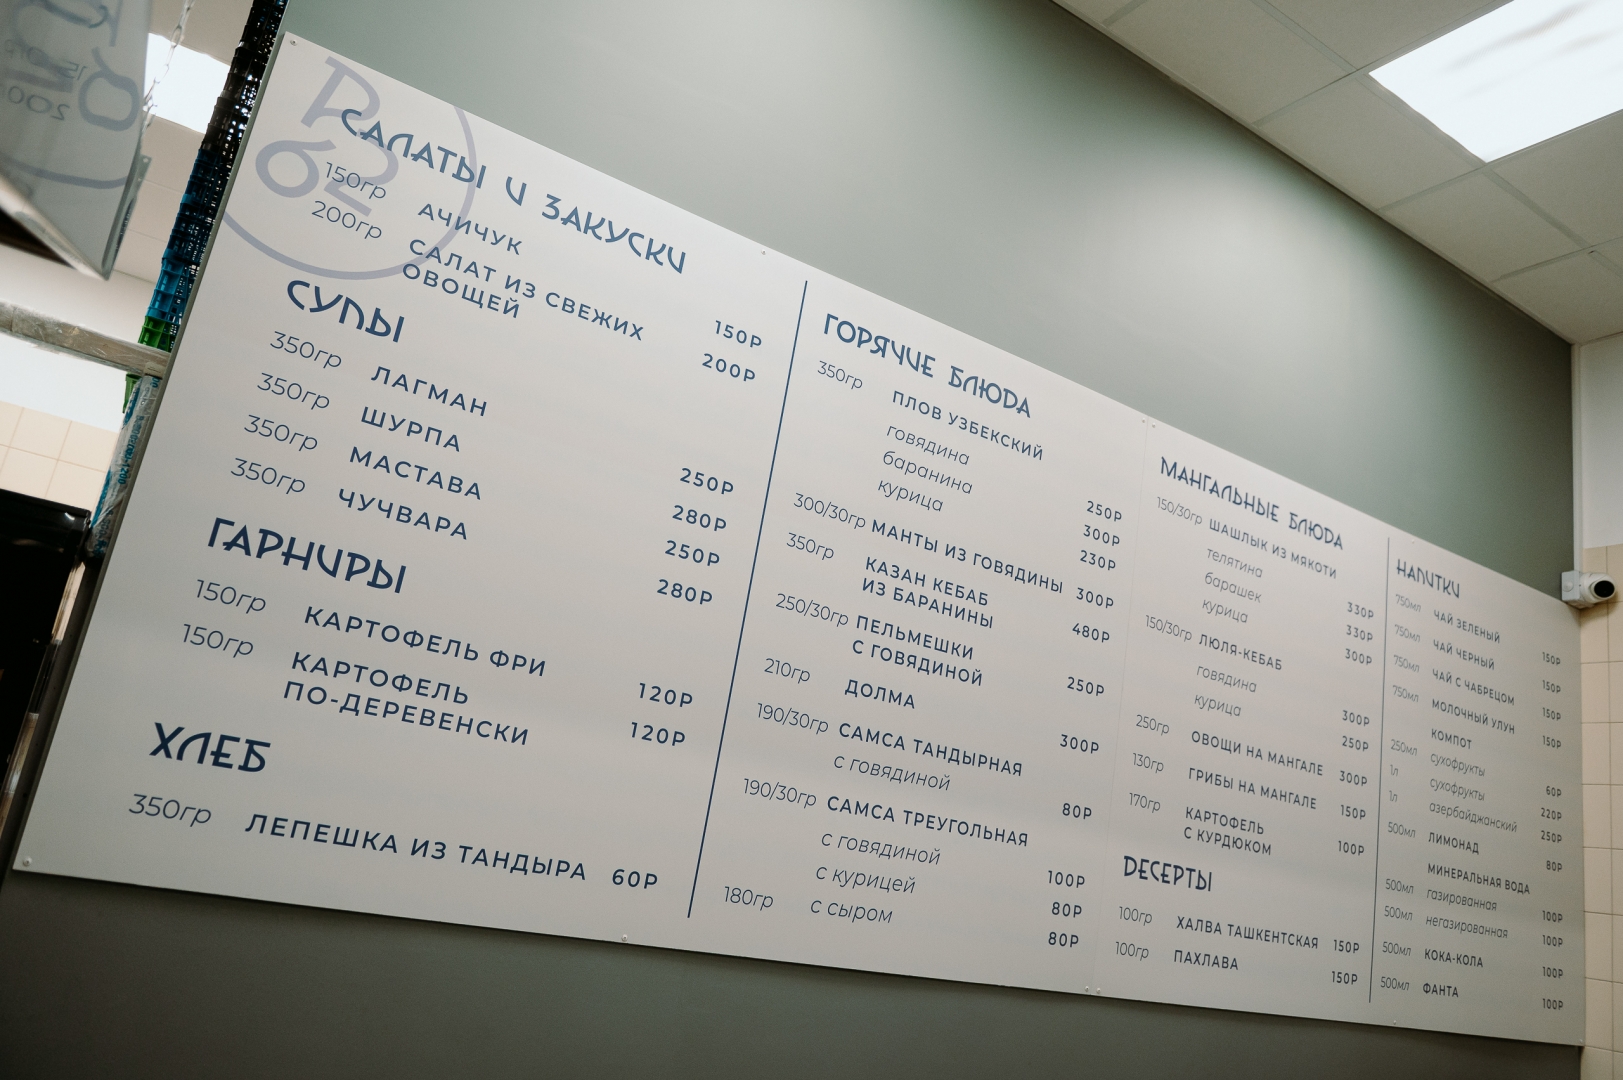 САЛАТЫ И ЗАКУСКИ
150гр АЧИЧУК 150Р
200гр САЛАТ ИЗ СВЕЖИХ 200Р
ОВОЩЕЙ
СУПЫ
350гр ЛАГМАН 250Р
350гр ШУРПА 280Р
350гр МАСТАВА 250Р
350гр ЧУЧВАРА 280Р
ГАРНИРЫ
150гр КАРТОФЕЛЬ ФРИ 120Р
150гр КАРТОФЕЛЬ 120Р
ПО-ДЕРЕВЕНСКИ
ХЛЕБ
350гр ЛЕПЕШКА ИЗ ТАНДЫРА 60Р
ГОРЯЧИЕ БЛЮДА
350гр ПЛОВ УЗБЕКСКИЙ
говядина 250Р
баранина 300Р
курица 230Р
300/30гр МАНТЫ ИЗ ГОВЯДИНЫ 300Р
350гр КАЗАН КЕБАБ 480Р
ИЗ БАРАНИНЫ
250/30гр ПЕЛЬМЕШКИ 250Р
С ГОВЯДИНОЙ
210гр ДОЛМА 300Р
190/30гр САМСА ТАНДЫРНАЯ
с говядиной 80Р
190/30гр САМСА ТРЕУГОЛЬНАЯ
с говядиной 100Р
с курицей 80Р
180гр с сыром 80Р
МАНГАЛЬНЫЕ БЛЮДА
150/30гр ШАШЛЫК ИЗ МЯКОТИ
телятина 330Р
барашек 330Р
курица 300Р
150/30гр ЛЮЛЯ-КЕБАБ
говядина 300Р
курица 250Р
250гр ОВОЩИ НА МАНГАЛЕ 300Р
130гр ГРИБЫ НА МАНГАЛЕ 150Р
170гр КАРТОФЕЛЬ 100Р
С КУРДЮКОМ
ДЕСЕРТЫ
100гр ХАЛВА ТАШКЕНТСКАЯ 150Р
100гр ПАХЛАВА 150Р
НАПИТКИ
750мл ЧАЙ ЗЕЛЕНЫЙ 150Р
750мл ЧАЙ ЧЕРНЫЙ 150Р
750мл ЧАЙ С ЧАБРЕЦОМ 150Р
750мл МОЛОЧНЫЙ УЛУН 150Р
КОМПОТ
250мл сухофрукты 60Р
1л сухофрукты 220Р
1л азербайджанский 250Р
500мл ЛИМОНАД 80Р
МИНЕРАЛЬНАЯ ВОДА
500мл газированная 100Р
500мл негазированная 100Р
500мл КОКА-КОЛА 100Р
500мл ФАНТА 100Р